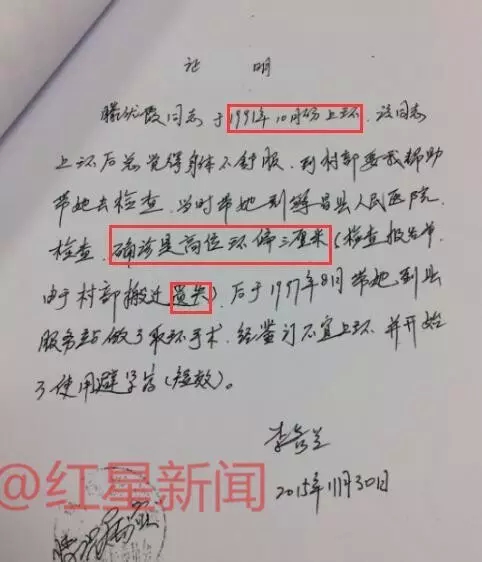 证 明
同志于1991年10月份上环.该同志
上环后总觉得身体不舒服.到村部要我帮助
带她去检查.当时带她到繁昌县人民医院
检查.确诊是高位环偏三厘米(检查报告单
由于村部搬迁遗失).后于1997年8月带她到县
服务站做了取环手术.经鉴订不宜上环.并开始
了使用避孕药(短效)。
2015年11月30日
@红星新闻